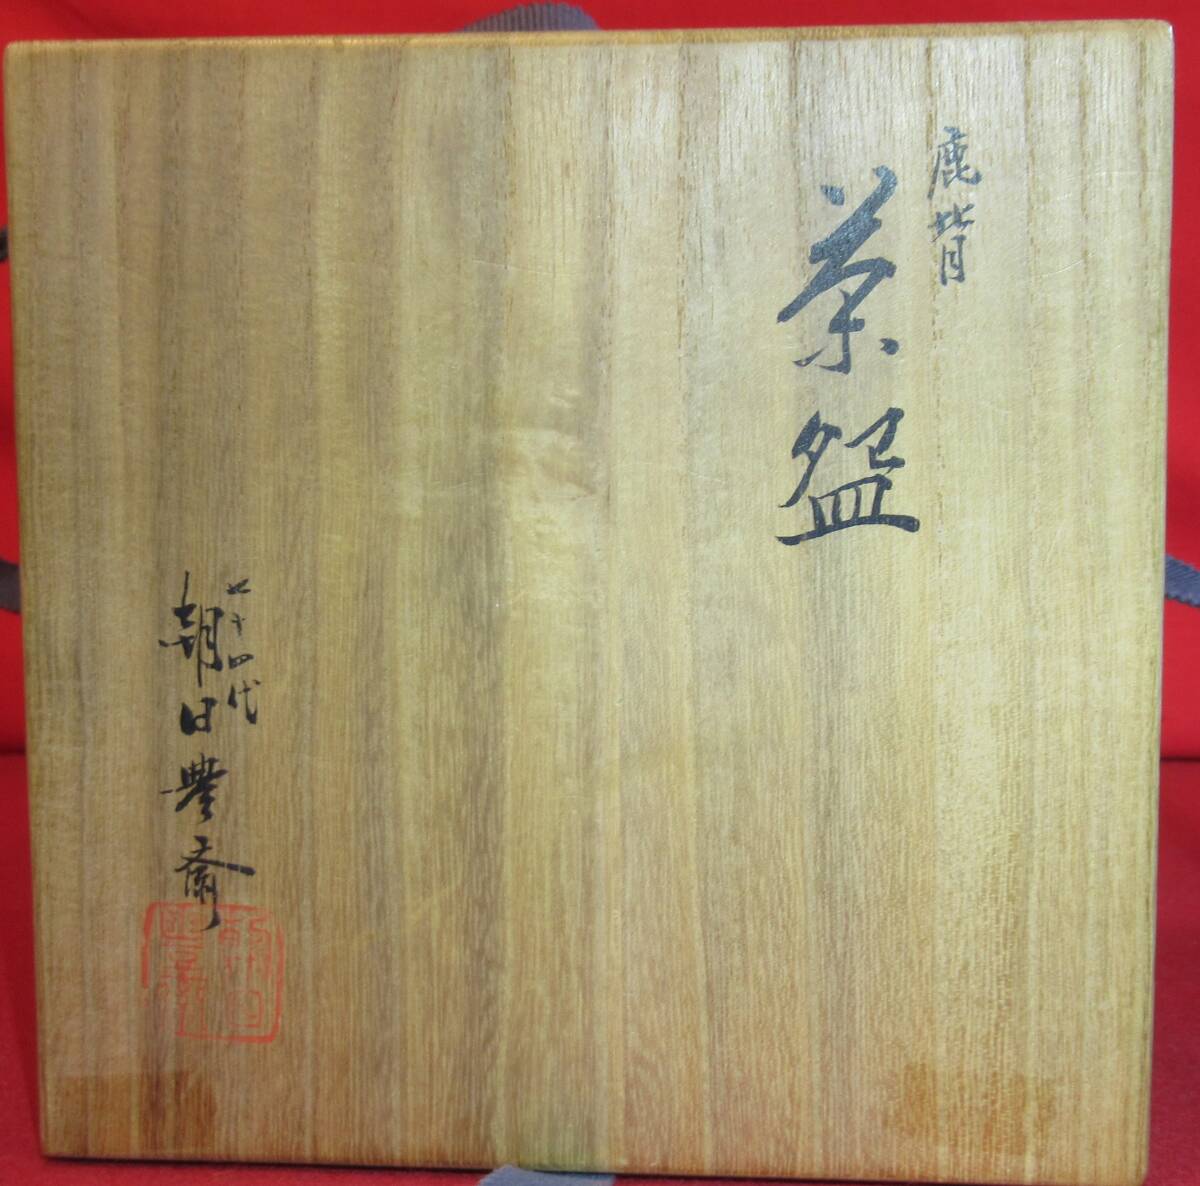 鹿背
茶盌
十四代
朝日豊斎